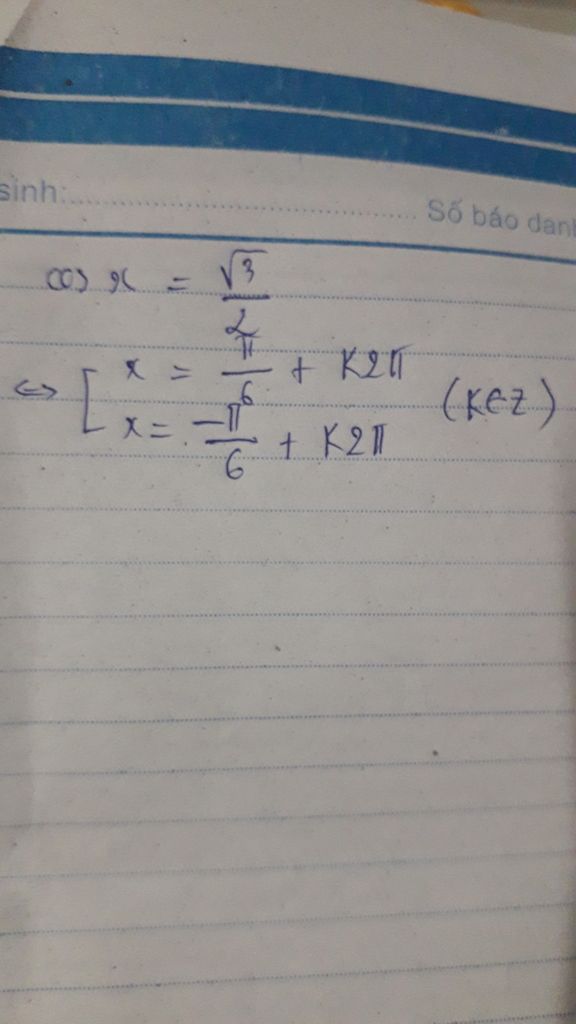 sinh:........................................ Số báo danh
cos x = √3/2
⇔ [ x = π/6 + K2π
x = -π/6 + K2π (K∈Z)